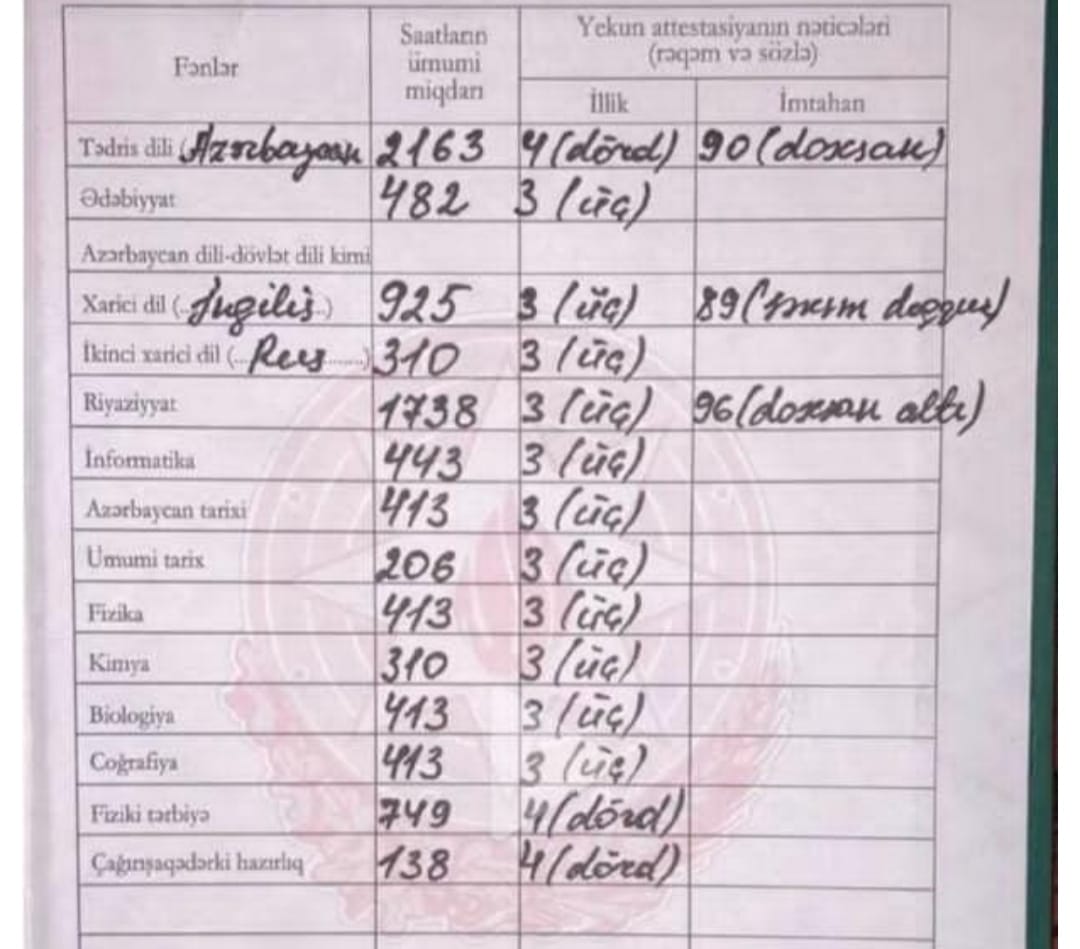 Fənlər
Saatların ümumi miqdarı
Yekun attestasiyanın nəticələri (rəqəm və sözlə)
İllik
İmtahan
Tədris dili (Azərbaycan 2163 4 (dörd) 90 (doxsan)
Ədəbiyyat 482 3 (üç)
Azərbaycan dili-dövlət dili kimi
Xarici dil (..İngilis..) 925 3 (üç) 89 (səksən doqquz)
İkinci xarici dil (...Rus.......) 310 3 (üç)
Riyaziyyat 1738 3 (üç) 96 (doxsan altı)
İnformatika 443 3 (üç)
Azərbaycan tarixi 413 3 (üç)
Ümumi tarix 206 3 (üç)
Fizika 413 3 (üç)
Kimya 310 3 (üç)
Biologiya 413 3 (üç)
Coğrafiya 413 3 (üç)
Fiziki tərbiyə 749 4 (dörd)
Çağırışaqədərki hazırlıq 138 4 (dörd)